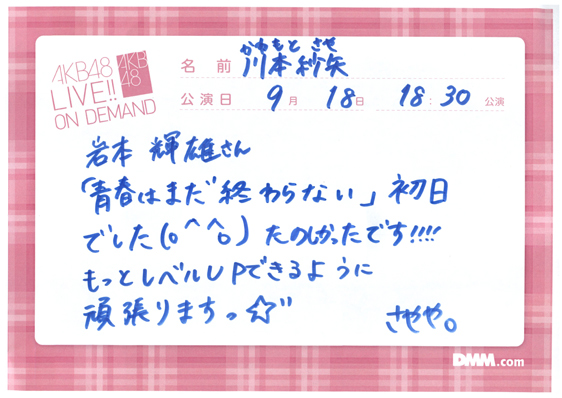 AKB48
LIVE!!
ON DEMAND
AKB
48
かわもと さや
名前 川本紗矢
公演日 9月 18日 18:30 公演
岩本 輝雄さん
「青春はまだ終わらない」初日
でした(o^^o) たのしかったです!!!!
もっとレベルUPできるように
頑張りますっ☆”
さやや。
DMM.com